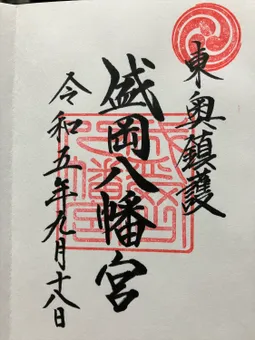 東奥鎮護
盛岡八幡宮
令和五年九月十八日